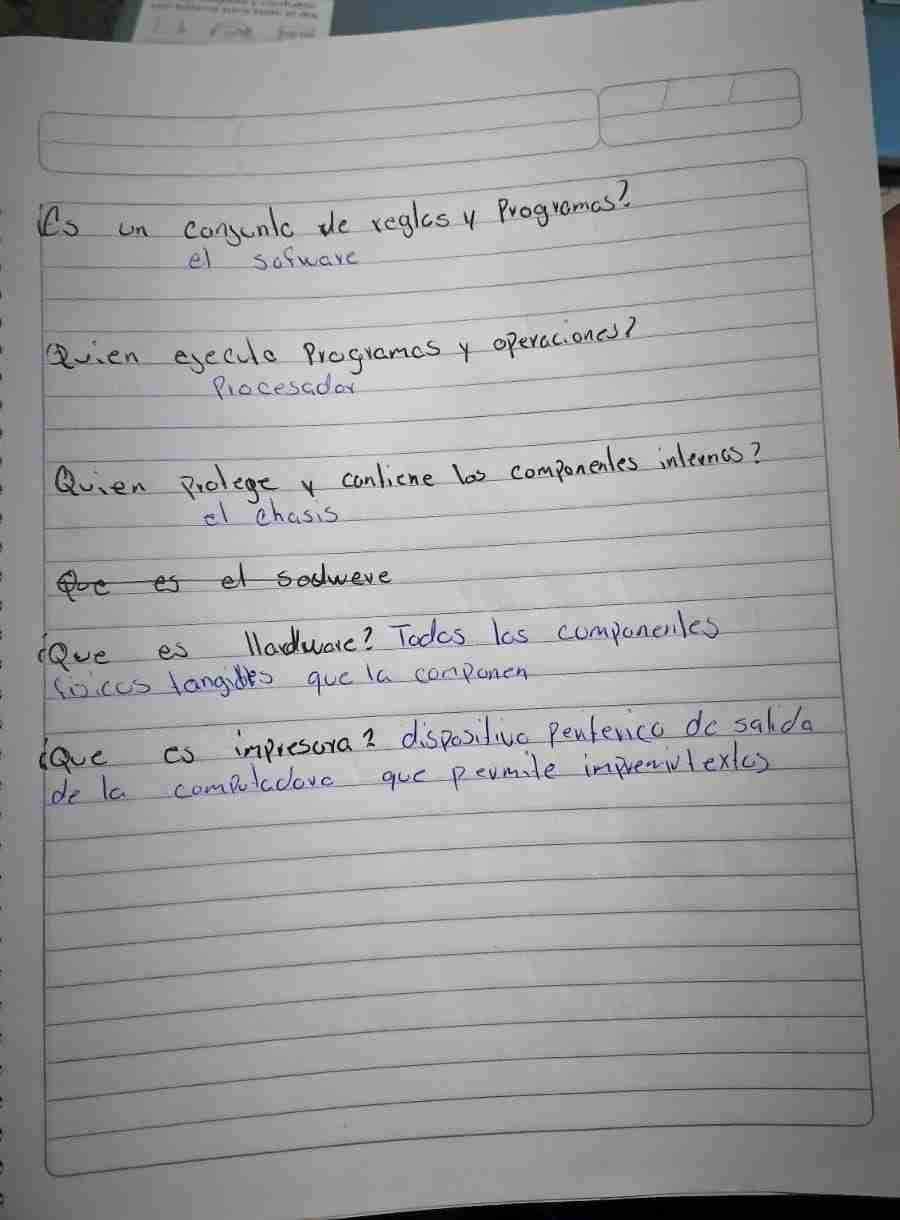 ¿Es un conjunto de reglas y Programas?
el sofware
Quien ejecuta Programas y operaciones?
Procesador
Quien protege y contiene los componentes internos?
el chasis
Que es el sodweve
¿Que es Hardware? Todos los componentes
fisicos tangibles que la componen
¿Que es impresora? dispositivo periferico de salida
de la computadora que permite imprimir textos